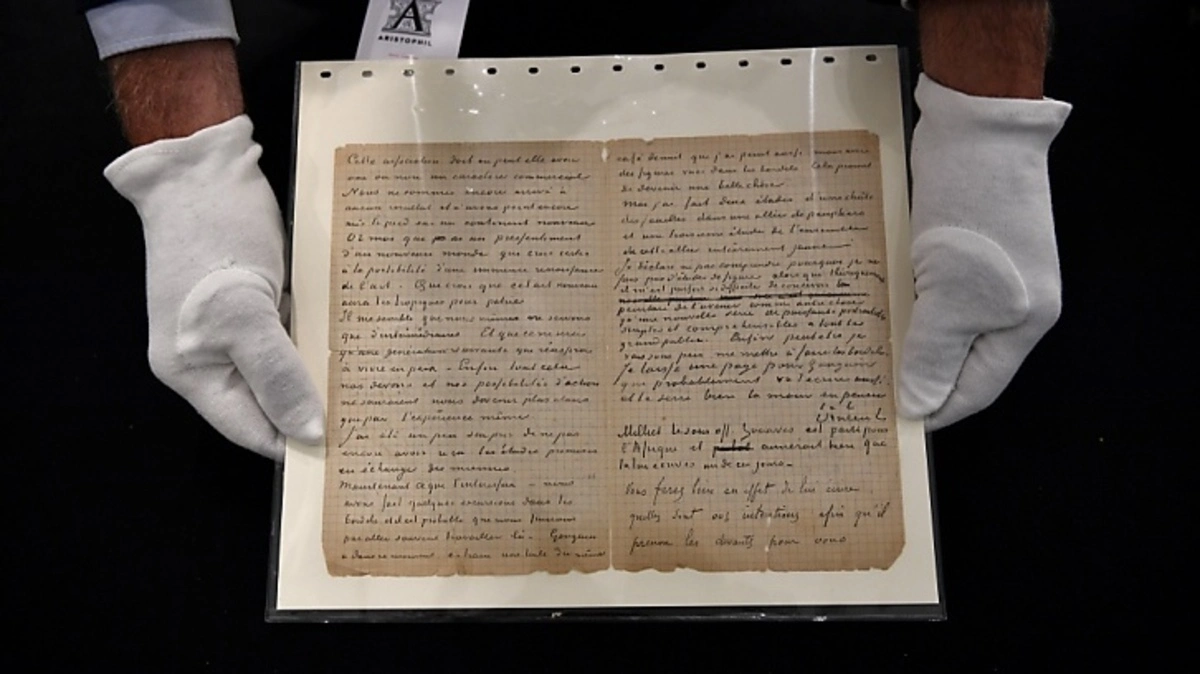 A
ARISTOPHIL
Cette association doit ou peut elle avoir
oui ou non un caractère commercial
Nous ne sommes encore arrivé à
aucun résultat et n'avons point encore
mis le pied sur un continent nouveau
Or moi que ai un pressentiment
d'un nouveau monde que crois certes
à la possibilité d'une immense renaissance
de l'art. Que crois que cet art nouveau
aura les tropiques pour patrie
Il me semble que nous mêmes ne servons
que d'intermédiaires Et que ce ne sera
qu'une génération suivante que réussira
à vivre en paix – Enfin tout cela
nos devoirs et nos possibilités d'action
ne sauraient nous devenir plus clairs
que par l'expérience même.
J'ai été un peu surpris de ne pas
encore avoir reçu les études promises
en échange des miennes.
Maintenant ce que t'intéressera – nous
avons fait quelques excursions dans les
bordels et il est probable que nous finirons
par aller souvent travailler là – Gauguin
a dans ce moment en train une toile du même
café de nuit que j'ai peint aussi mais avec
des figures vues dans les bordels Cela promet
de devenir une belle chose
Moi j'ai fait deux études d'une chûte
des feuilles dans une allée de peupliers
et une troisième étude de l'ensemble
de cette allée entièrement jaune
Je déclare ne pas comprendre pourquoi je ne
fais pas d'études de figure alors que
il m'est parfois si difficile de concevoir la
peinture de l'avenir comme autre chose
qu'une nouvelle série de puissants portraitistes
simples et compréhensibles à tout le
grand public. Enfin peut être je
vais sous peu me mettre à faire les bordels.
Je laisse une page pour Gauguin
que probablement va t'écrire aussi.
et te serre bien la main en pensée
t. à t.
Vincent
Milliet le sous off. Zouaves est parti pour
l'Afrique et aimerait bien que
tu lui écrives un de ces jours –
Vous ferez bien en effet de lui écrire
quelles sont vos intentions afin qu'il
prenne les devants pour vous